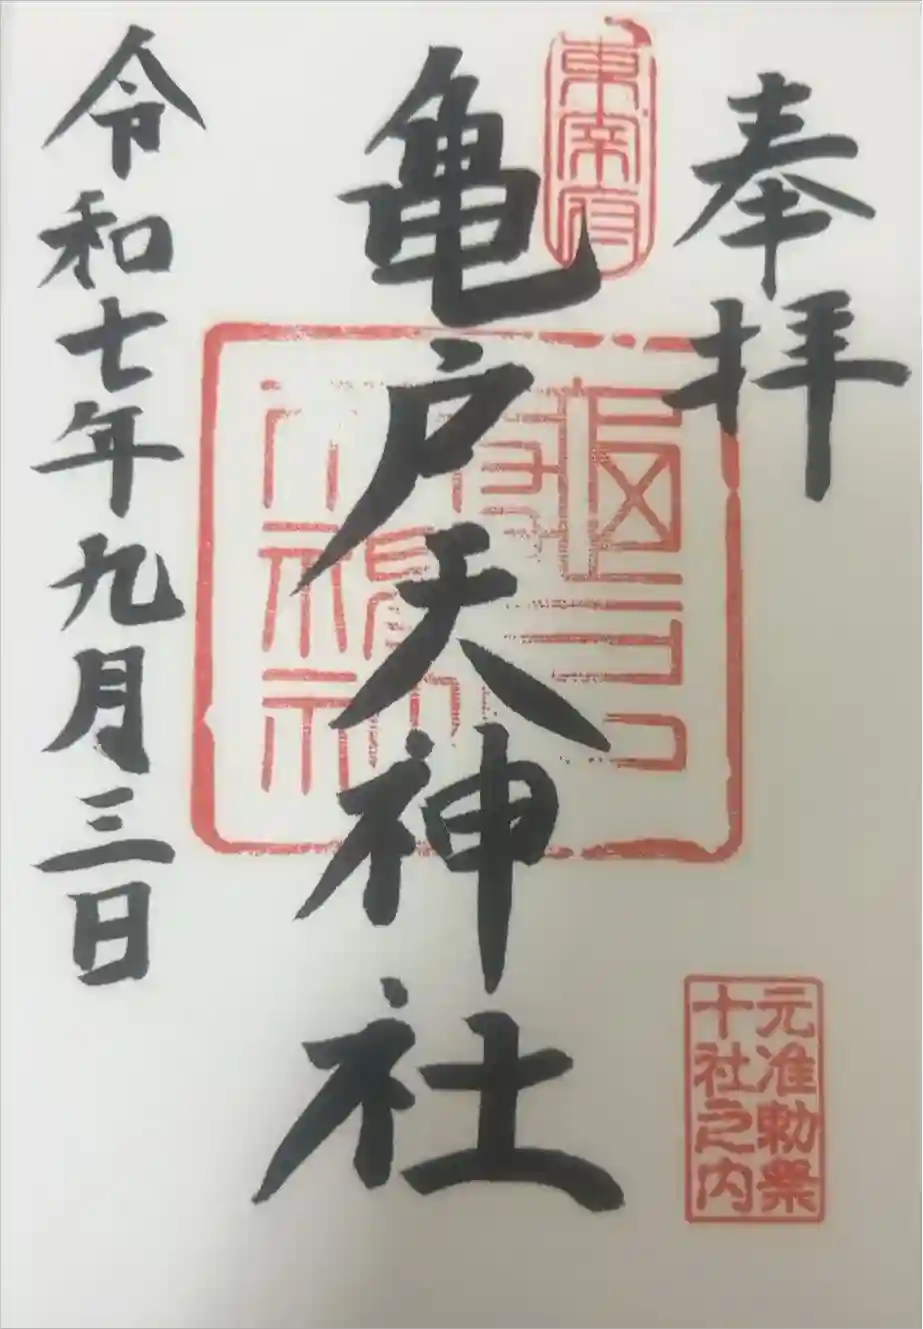 奉拝
東宰府
亀戸天神社
令和七年九月三日
元准勅祭
十社之内